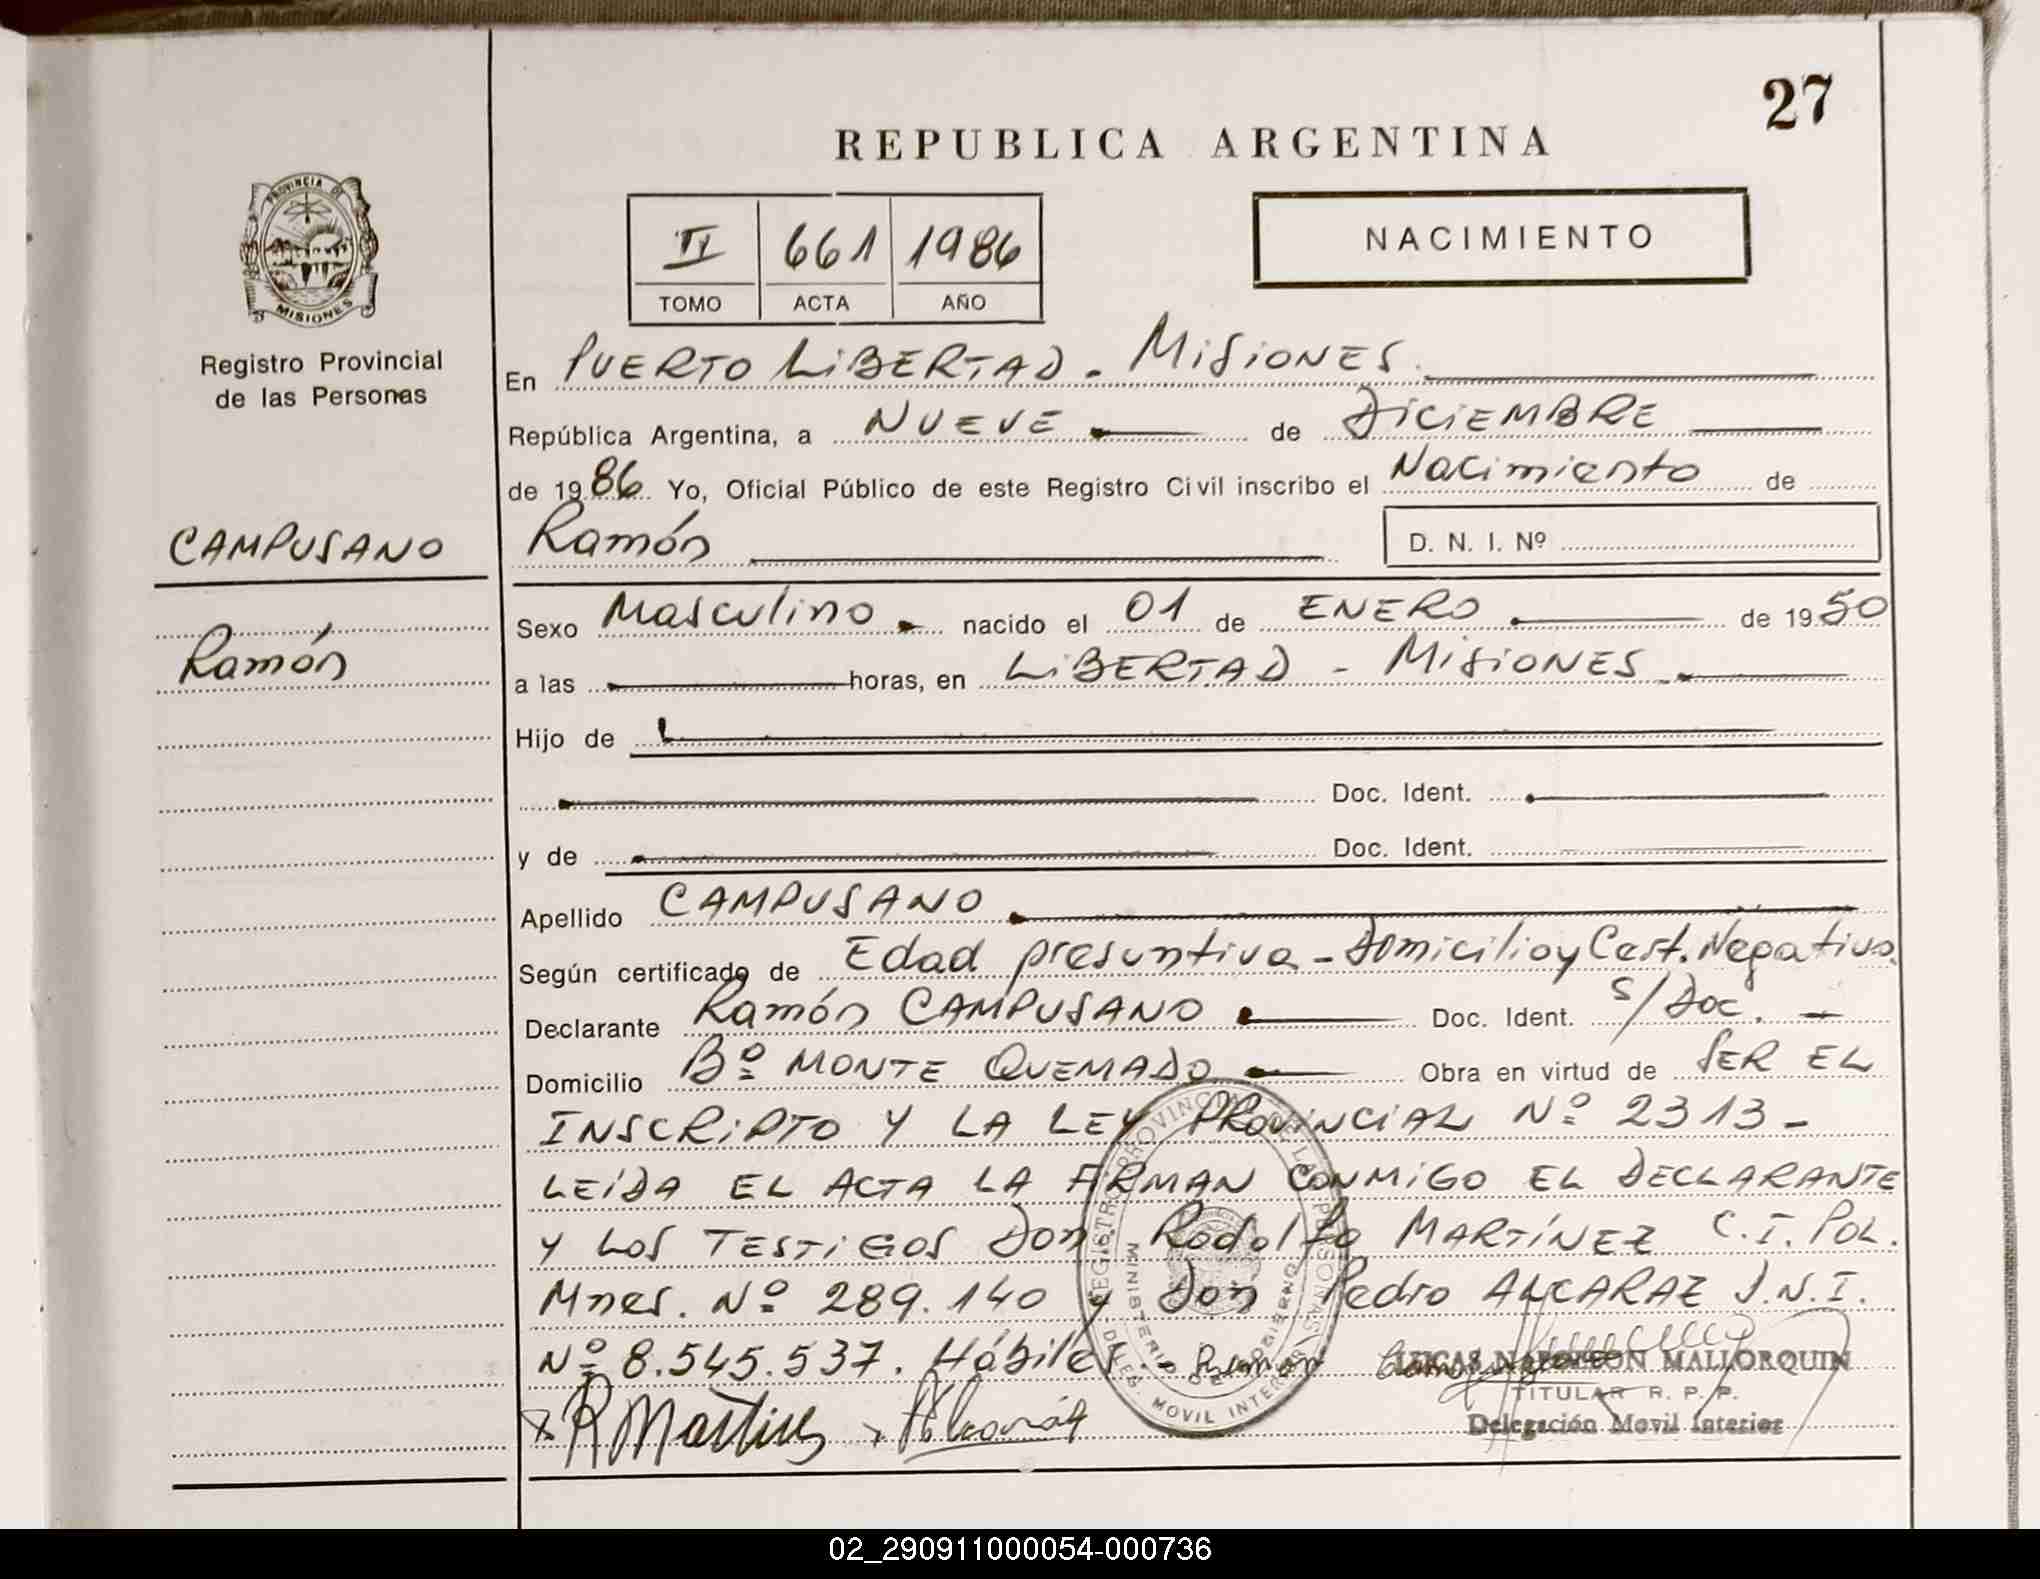 27
REPUBLICA ARGENTINA
PROVINCIA DE
MISIONES
Registro Provincial
de las Personas
II 661 1986
TOMO ACTA AÑO
NACIMIENTO
En PUERTO LIBERTAD - MISIONES.
República Argentina, a NUEVE de DICIEMBRE
de 1986. Yo, Oficial Público de este Registro Civil inscribo el Nacimiento de
CAMPUSANO
Ramón
Ramón D. N. I. Nº
Sexo Masculino nacido el 01 de ENERO de 1950
a las horas, en LIBERTAD - MISIONES.
Hijo de
Doc. Ident.
y de Doc. Ident.
Apellido CAMPUSANO
Según certificado de Edad presuntiva - Domicilio y Cert. Negativo.
Declarante Ramón CAMPUSANO Doc. Ident. S/Doc.
Domicilio Bº MONTE QUEMADO Obra en virtud de SER EL
INSCRIPTO Y LA LEY PROVINCIAL Nº 2313-
LEÍDA EL ACTA LA FIRMAN CONMIGO EL DECLARANTE
Y LOS TESTIGOS Don Rodolfo MARTÍNEZ C.I. POL.
Mnes. Nº 289.140 y Don Pedro ALCARAZ D.N.I.
Nº 8.545.537. Hábiles.- Ramon
LUCAS NAPOLEON MALLORQUIN
TITULAR R. P. P.
Delegación Movil Interior
R Martines
REGISTRO PROVINCIAL DE LAS PERSONAS
MINISTERIO DE GOBIERNO
DLEG. MOVIL INTERIOR
02_290911000054-000736